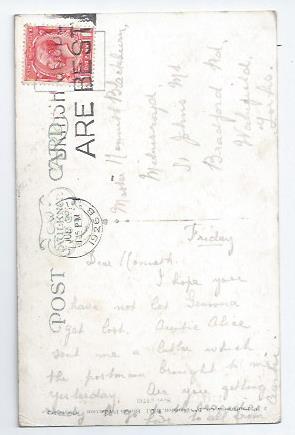 BRITISH GOODS
ARE BEST
POST CARD
1926
Master Kenneth Blackburn,
St Johns Rd
Bradford Rd,
Wakefield,
Yorks.
Friday
Dear Kenneth
I hope you
have not let Gemma
get lost. Auntie Alice
sent me a letter which
the postman brought to me
yesterday. Are you getting
love to all from